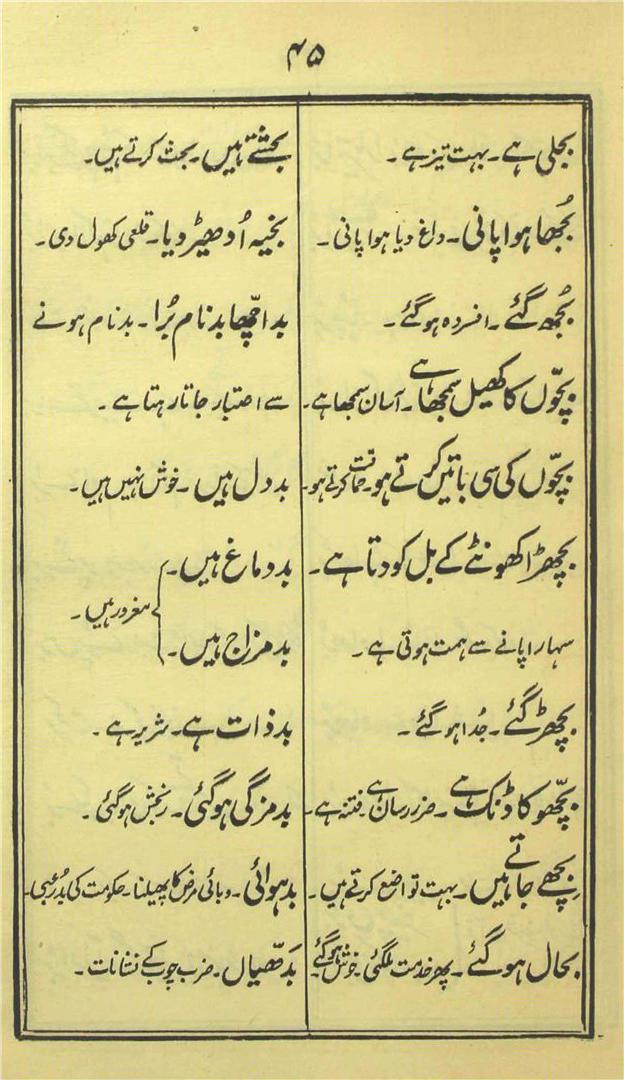 ۴۵
بجلی ہے۔ بہت تیز ہے۔
بُجھا ہوا پانی۔ داغ دیا ہوا پانی۔
بُجھ گئے۔ افسردہ ہو گئے۔
بچّوں کا کھیل سمجھا ہے۔ آسان سمجھا ہے۔
بچّوں کی سی باتیں کرتے ہو۔ حماقت کرتے ہو۔
بچھڑا کھونٹے کے بل کودتا ہے۔
سہارا پانے سے ہمت ہوتی ہے۔
بچھڑ گئے۔ جُدا ہو گئے۔
بچّھو کا ڈنک ہے۔ ضرر رساں ہے۔ فتنہ ہے۔
بِچھے جاتے ہیں۔ بہت تواضع کرتے ہیں۔
بحال ہو گئے۔ پھر خدمت ملگئی۔ خوش ہو گئے۔
بحثتے ہیں۔ بحث کرتے ہیں۔
بخیہ اُدھیڑ دیا۔ قلعی کھول دی۔
بد اچّھا بدنام بُرا۔ بدنام ہونے
سے اعتبار جاتا رہتا ہے۔
بددل ہیں۔ خوش نہیں ہیں۔
بددماغ ہیں۔
بدمزاج ہیں۔
مغرور ہیں۔
بدذات ہے۔ شریر ہے۔
بدمزگی ہو گئی۔ رنجش ہو گئی۔
بدہوائی۔ وبائی مرض کا پھیلنا۔ حکومت کی بدرُعبی۔
بدّھیاں۔ ضرب چوب کے نشانات۔